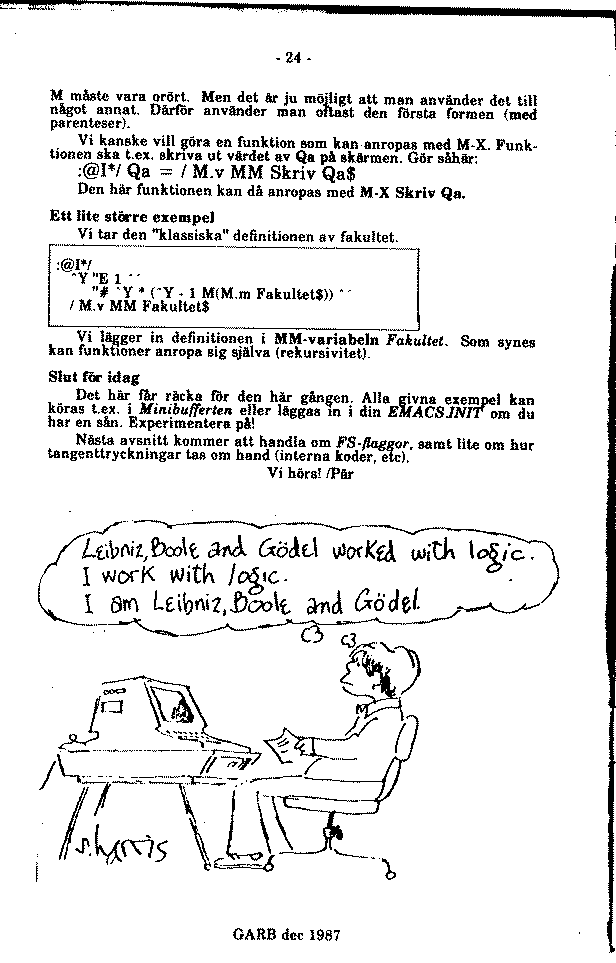 - 24 -
M måste vara orört. Men det är ju möjligt att man använder det till
något annat. Därför använder man oftast den första formen (med
parenteser).
Vi kanske vill göra en funktion som kan anropas med M-X. Funk-
tionen ska t.ex. skriva ut värdet av Qa på skärmen. Gör såhär:
:@I*/ Qa = / M.v MM Skriv Qa$
Den här funktionen kan då anropas med M-X Skriv Qa.
Ett lite större exempel
Vi tar den "klassiska" definitionen av fakultet.
:@I*/
^Y "E 1 ``
"# `Y * (^Y - 1 M(M.m Fakultet$)) ``
/ M.v MM Fakultet$
Vi lägger in definitionen i MM-variabeln Fakultet. Som synes
kan funktioner anropa sig själva (rekursivitet).
Slut för idag
Det här får räcka för den här gången. Alla givna exempel kan
köras t.ex. i Minibufferten eller läggas in i din EMACS.INIT om du
har en sån. Experimentera på!
Nästa avsnitt kommer att handla om FS-flaggor, samt lite om hur
tangenttryckningar tas om hand (interna koder, etc).
Vi hörs! /Pär
Leibniz, Boole and Gödel worked with logic.
I work with logic.
I am Leibniz, Boole and Gödel.
s.harris
GARB dec 1987